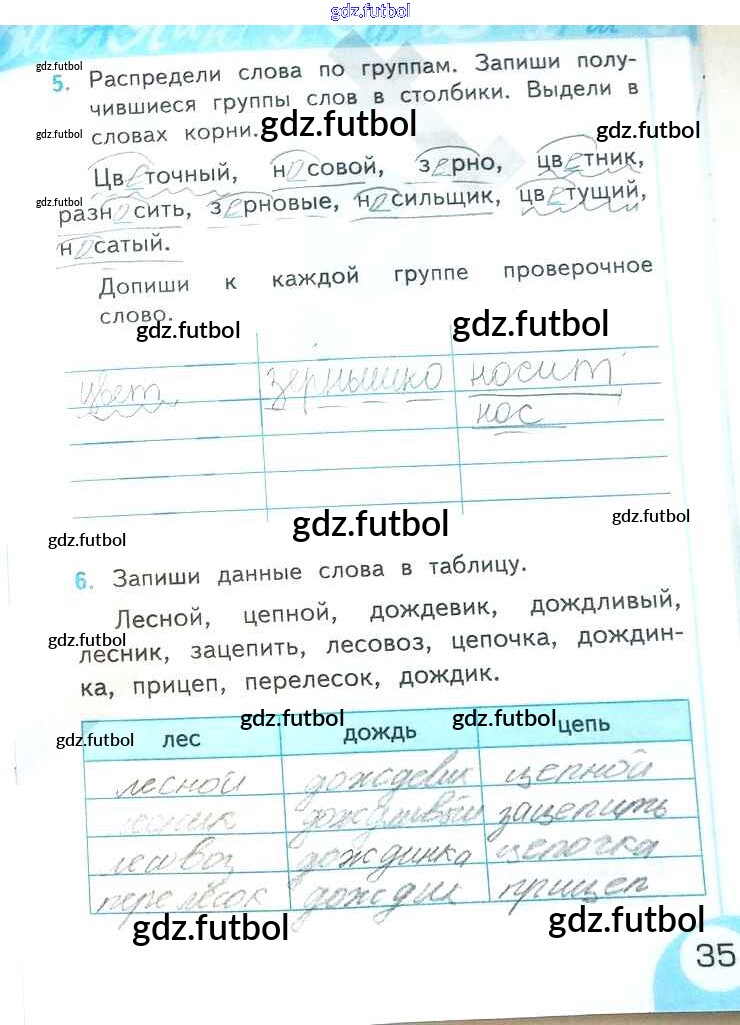 gdz.futbol
gdz.futbol
5. Распредели слова по группам. Запиши полу-
чившиеся группы слов в столбики. Выдели в
gdz.futbol словах корни. gdz.futbol gdz.futbol
Цветочный, носовой, зерно, цветник,
gdz.futbol
разносить, зерновые, носильщик, цветущий,
носатый.
Допиши к каждой группе проверочное
слово.
gdz.futbol gdz.futbol
цвет зёрнышко носит
нос
gdz.futbol gdz.futbol gdz.futbol
6. Запиши данные слова в таблицу.
Лесной, цепной, дождевик, дождливый,
gdz.futbol
лесник, зацепить, лесовоз, цепочка, дождин-
ка, прицеп, перелесок, дождик.
gdz.futbol gdz.futbol gdz.futbol
лес дождь цепь
лесной дождевик цепной
лесник дождливый зацепить
лесовоз дождинка цепочка
перелесок дождик прицеп
gdz.futbol gdz.futbol
35